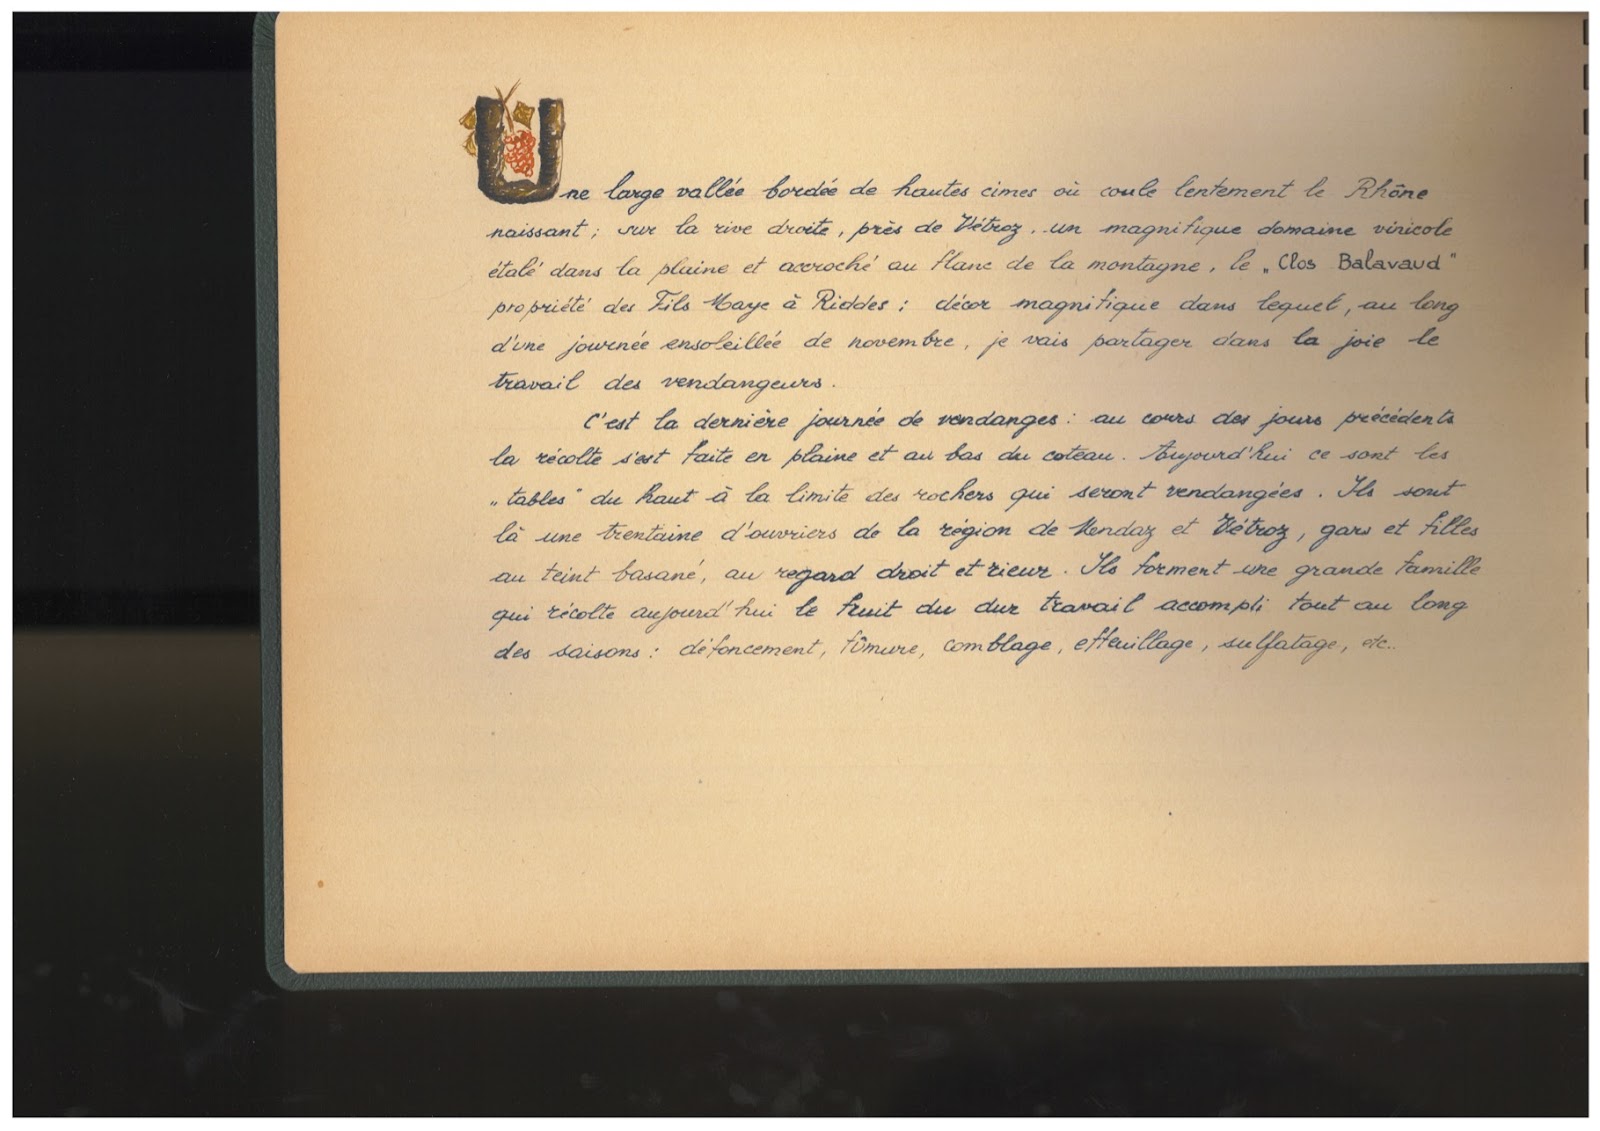 Une large vallée bordée de hautes cimes où coule lentement le Rhône
naissant ; sur la rive droite, près de Vétroz, un magnifique domaine vinicole
étalé dans la plaine et accroché au flanc de la montagne, le „Clos Balavaud"
propriété des Fils Maye à Riddes ; décor magnifique dans lequel, au long
d'une journée ensoleillée de novembre, je vais partager dans la joie le
travail des vendangeurs.
C'est la dernière journée de vendanges : au cours des jours précédents
la récolte s'est faite en plaine et au bas du coteau. Aujourd'hui ce sont les
„tables" du haut à la limite des rochers qui seront vendangées. Ils sont
là une trentaine d'ouvriers de la région de Nendaz et Vétroz, gars et filles
au teint basané, au regard droit et rieur. Ils forment une grande famille
qui récolte aujourd'hui le fruit du dur travail accompli tout au long
des saisons : défoncement, fûmure, comblage, effeuillage, sulfatage, etc..